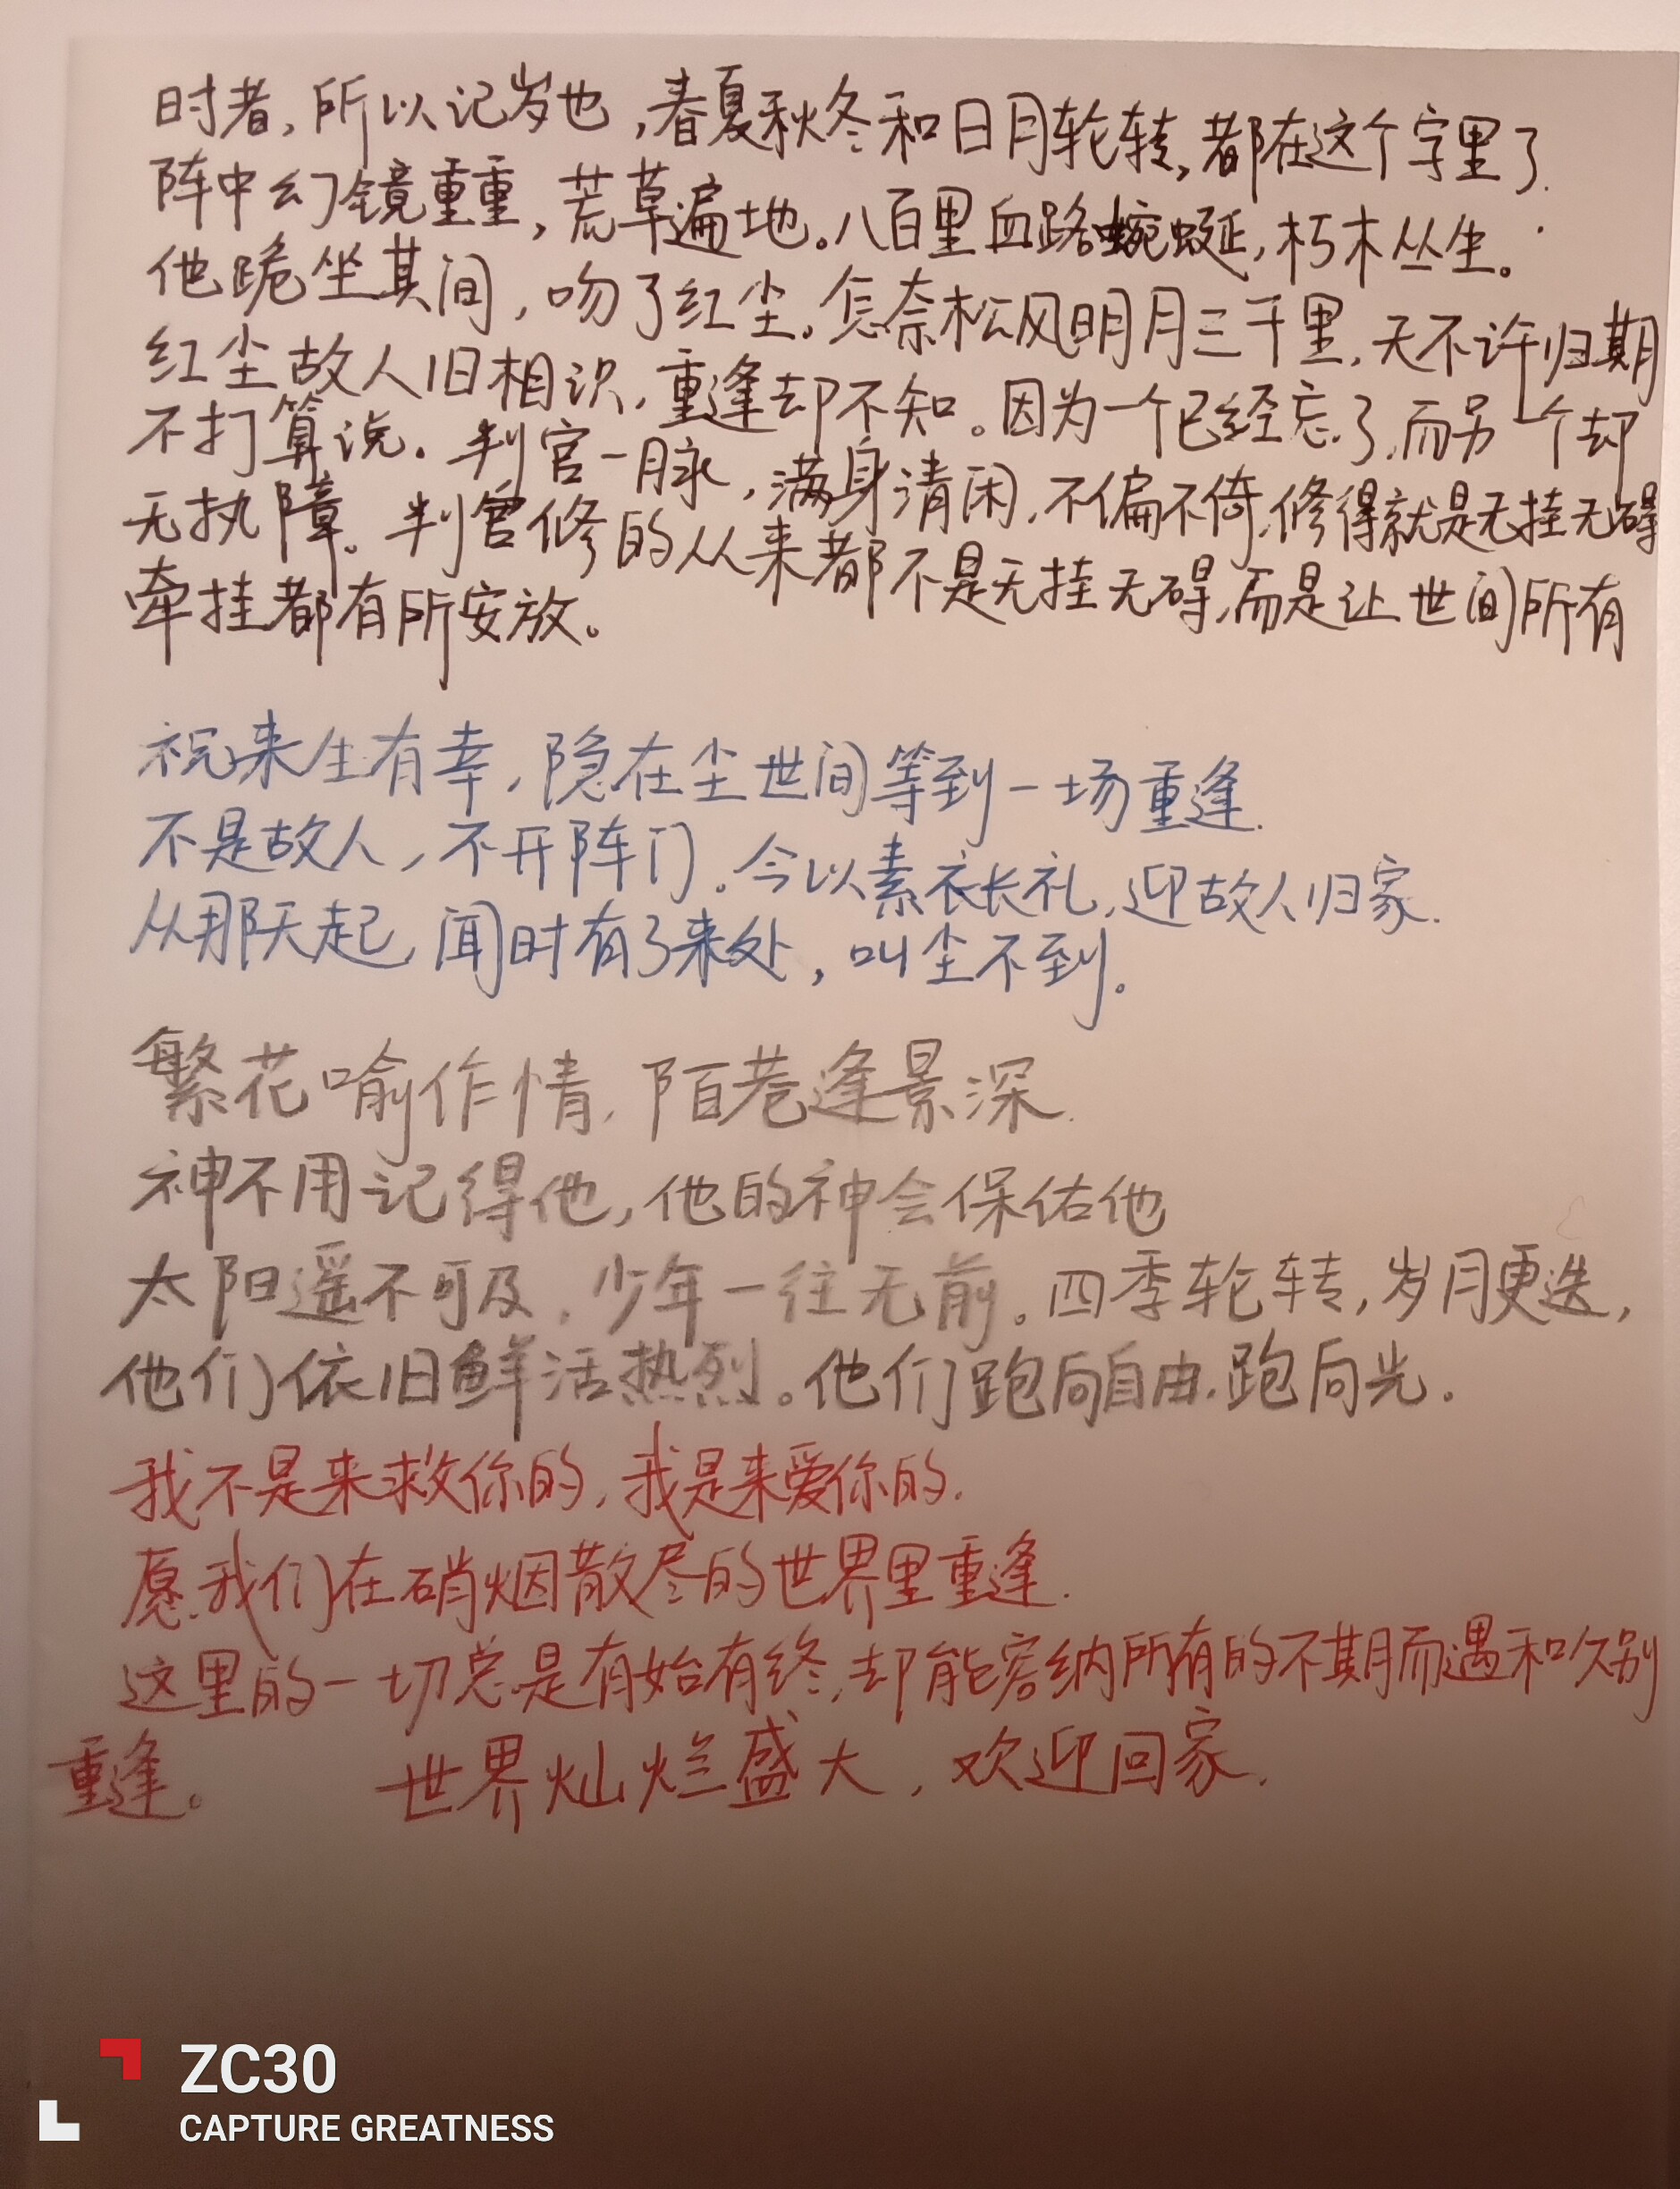 时者，所以记岁也，春夏秋冬和日月轮转，都在这个字里了.
阵中幻镜重重，荒草遍地。八百里血路蜿蜒，朽木丛生。
他跪坐其间，吻了红尘。怎奈松风明月三千里，天不许归期
红尘故人旧相识，重逢却不知。因为一个已经忘了，而另一个却
不打算说。判官一脉，满身清闲，不偏不倚，修得就是无挂无碍
无执障。判官修的从来都不是无挂无碍，而是让世间所有
牵挂都有所安放。
祝来生有幸，隐在尘世间等到一场重逢.
不是故人，不开阵门。今以素衣长礼，迎故人归家.
从那天起，闻时有了来处，叫尘不到。
繁花喻作情，陌巷逢景深.
神不用记得他，他的神会保佑他
太阳遥不可及，少年一往无前。四季轮转，岁月更迭，
他们依旧鲜活热烈。他们跑向自由，跑向光.
我不是来救你的，我是来爱你的.
愿我们在硝烟散尽的世界里重逢.
这里的一切总是有始有终，却能容纳所有的不期而遇和久别
重逢。 世界灿烂盛大，欢迎回家.
ZC30
CAPTURE GREATNESS